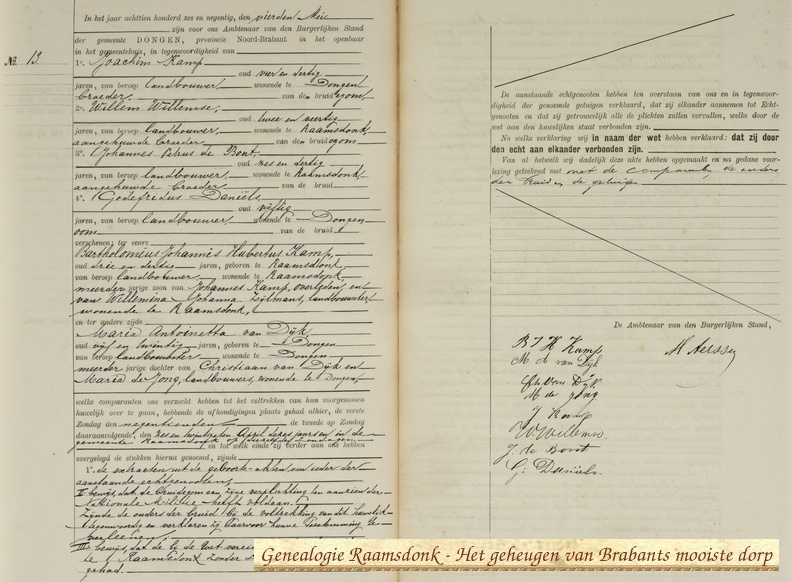 In het jaar achttien honderd zes en negentig, den vierden Mei
zijn voor ons Ambtenaar van den Burgerlijken Stand
der gemeente DONGEN, provincie Noord-Brabant in het openbaar
in het gemeentehuis, in tegenwoordigheid van
No. 13.
1o. Joachim Kamp
oud vier en dertig
jaren, van beroep landbouwer, wonende te Dongen
broeder van den bruidegom
2o. Willem Willemse,
oud twee en veertig
jaren, van beroep landbouwer, wonende te Raamsdonk,
aangehuwde broeder van den bruidegom
3o. Johannes Petrus de Bont,
oud zes en dertig
jaren, van beroep landbouwer, wonende te Raamsdonk,
aangehuwde broeder van de bruid
4o. Godefridus Daniëls,
oud vijftig
jaren, van beroep landbouwer, wonende te Dongen
oom van de bruid
verschenen; ter eenre
Bartholomeus Johannis Hubertus Kamp,
oud drie en dertig jaren, geboren te Raamsdonk
van beroep landbouwer, wonende te Raamsdonk,
meerderjarige zoon van Johannes Kamp, overleden, en
van Willemina Johanna Zijlmans, landbouwster
wonende te Raamsdonk,
en ter andere zijde
Maria Antoinetta van Dijk
oud vijf en twintig jaren, geboren te Dongen
van beroep landbouwster wonende te Dongen
meerderjarige dochter van Christiaan van Dijk en
Maria de Jong, landbouwers, wonende te Dongen,
welke comparanten ons verzocht hebben tot het voltrekken van hun voorgenomen
huwelijk over te gaan, hebbende de afkondigingen plaats gehad alhier, de eerste
Zondag den negentienden de tweede op Zondag
daaraanvolgende, den zes en twintigsten April dezes jaars en in de
gemeente Raamsdonk op dezelfde zondagen
en tot welk einde zij verder aan ons hebben
overgelegd de stukken hierna genoemd, zijnde
1o. de extracten uit de geboorte-akten van ieder der
aanstaande echtgenooten,
II bewijs, dat de bruidegom aan zijne verplichting ten aanzien der
Nationale Militie heeft voldaan.
Zijnde de ouders der bruid bij de voltrekking van dit huwelijk
tegenwoordig en verklaren zij daarvoor hunne toestemming te
verleenen,
III bewijs, dat de bij de Wet
te Raamsdonk zonder
gehad.
De aanstaande echtgenooten hebben ten overstaan van ons en in tegenwoor-
digheid der genoemde getuigen verklaard, dat zij elkander aannemen tot Echt-
genooten en dat zij getrouwelijk alle de plichten zullen vervullen, welke door de
wet aan den huwelijken staat verbonden zijn.
Na welke verklaring wij in naam der wet hebben verklaard: dat zij door
den echt aan elkander verbonden zijn.
Van al hetwelk wij dadelijk deze akte hebben opgemaakt en na gedane voor-
lezing geteekend met de comparanten, de ouders
der bruid en de getuigen
De Ambtenaar van den Burgerlijken Stand,
B J H Kamp
M A van Dijk
Ch van Dijk
M de Jong
J Kamp
W. Willemse
J. de Bont
G. Daniëls.
Genealogie Raamsdonk - Het geheugen van Brabants mooiste dorp